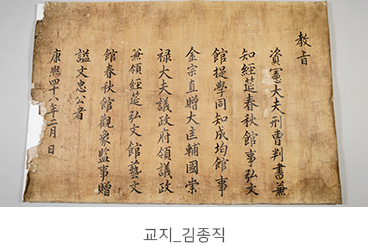 教旨
資憲大夫刑曹判書兼
知經筵春秋館事弘文
館提學同知成均館事
金宗直贈大匡輔國崇
祿大夫議政府領議政
兼領經筵弘文館藝文
館春秋館觀象監事贈
謚文忠公者
康熙四十八年二月 日
교지_김종직